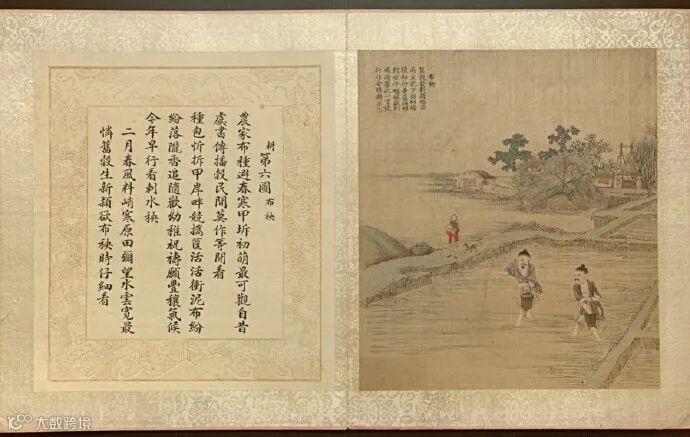 耕 第六圖 布秧
農家布種避春寒甲坼初萌最可觀自昔
虞書傳播穀民間莫作等閒看
種包忻拆甲岸畔競攜筐活活衝泥布紛
紛落隴香追隨歡幼稚祝禱願豐穰氣候
今年早行看刺水秧
二月春風料峭寒原田彌望水雲寬最
憐舊穀生新穎欲布秧時仔細看
布秧
舊穀發新穎梅黃
雨生肥下田初播
大数跨境